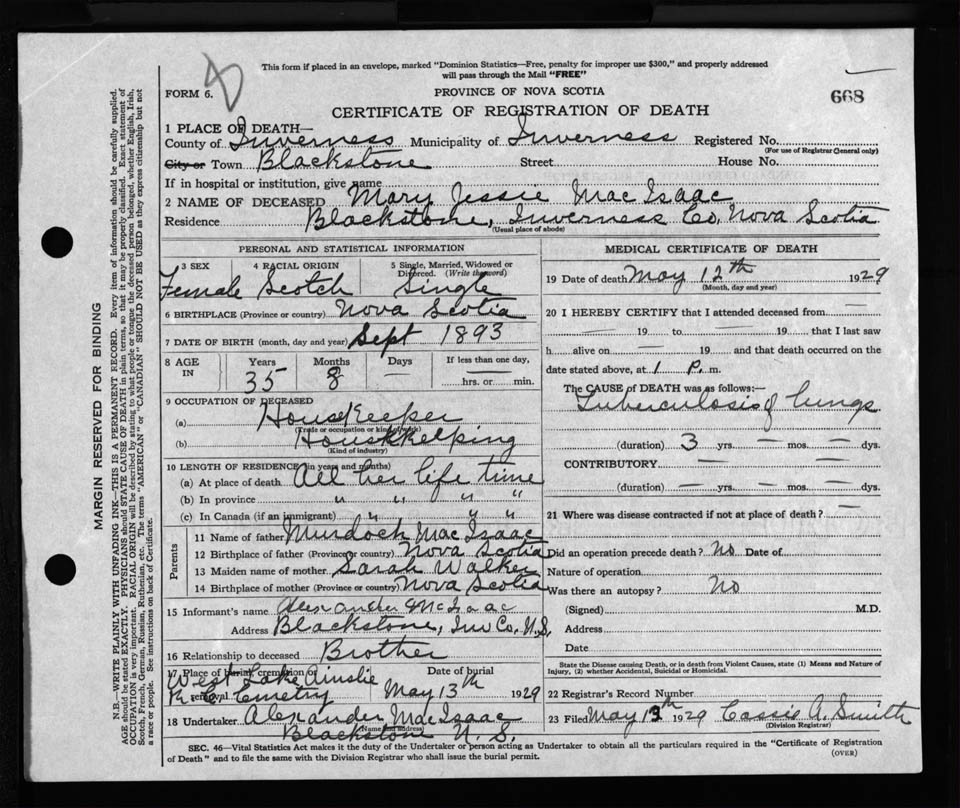 This form if placed in an envelope, marked "Dominion Statistics—Free, penalty for improper use $300," and properly addressed
will pass through the Mail "FREE"
FORM 6.
PROVINCE OF NOVA SCOTIA
668
CERTIFICATE OF REGISTRATION OF DEATH
1 PLACE OF DEATH—
County of Inverness Municipality of Inverness Registered No.
(For use of Registrar General only)
City or Town Blackstone Street House No.
If in hospital or institution, give name
2 NAME OF DECEASED Mary Jessie MacIsaac
Residence Blackstone, Inverness Co, Nova Scotia
(Usual place of abode)
PERSONAL AND STATISTICAL INFORMATION
3 SEX 4 RACIAL ORIGIN 5 Single, Married, Widowed or Divorced. (Write the word)
Female Scotch Single
6 BIRTHPLACE (Province or country) Nova Scotia
7 DATE OF BIRTH (month, day and year) Sept 1893
8 AGE IN Years Months Days If less than one day,
35 8 — hrs. or min.
9 OCCUPATION OF DECEASED
(a) Housekeeper
(Trade or occupation or kind of work)
(b) Housekkeeping
(Kind of industry)
10 LENGTH OF RESIDENCE (in years and months)
(a) At place of death All her life time
(b) In province " " " "
(c) In Canada (if an immigrant) " " "
Parents
11 Name of father Murdoch MacIsaac
12 Birthplace of father (Province or country) Nova Scotia
13 Maiden name of mother Sarah Walker
14 Birthplace of mother (Province or country) Nova Scotia
15 Informant's name Alexander McIsaac
Address Blackstone, Inv Co. N.S.
16 Relationship to deceased Brother
17 Place of burial, cremation or removal West Lake Ainslie Date of burial
R C Cemetry May 13th 1929
18 Undertaker Alexander MacIsaac
(Name and address)
Blackstone N. S.
MEDICAL CERTIFICATE OF DEATH
19 Date of death May 12th 1929
(Month, day and year)
20 I HEREBY CERTIFY that I attended deceased from —
— 19 to — 19 that I last saw
h alive on — 19 and that death occurred on the
date stated above, at 1 P. m.
The CAUSE of DEATH was as follows:—
Tuberculosis of lungs
(duration) 3 yrs. — mos. — dys.
CONTRIBUTORY —
(duration) — yrs. — mos. — dys.
21 Where was disease contracted if not at place of death? —
Did an operation precede death? No Date of
Nature of operation
Was there an autopsy? No
(Signed) M.D.
Address
Date
State the Disease causing Death, or in death from Violent Causes, state (1) Means and Nature of
Injury, (2) whether Accidental, Suicidal or Homicidal.
22 Registrar's Record Number
23 Filed May 13th 1929 Cassie A. Smith
(Division Registrar)
SEC. 46—Vital Statistics Act makes it the duty of the Undertaker or person acting as Undertaker to obtain all the particulars required in the "Certificate of Registration
of Death" and to file the same with the Division Registrar who shall issue the burial permit. (OVER)
MARGIN RESERVED FOR BINDING
N.B.—WRITE PLAINLY WITH UNFADING INK—THIS IS A PERMANENT RECORD. Every item of information should be carefully supplied.
AGE should be stated EXACTLY. PHYSICIANS should STATE CAUSE OF DEATH in plain terms, so that it may be properly classified. Exact statement of
OCCUPATION is very important. RACIAL ORIGIN will be described by stating to what people or tongue the deceased person belonged, whether English, Irish,
Scotch, French, German, Russian, Ruthenian, etc. The terms "AMERICAN" or "CANADIAN" SHOULD NOT BE USED as they express citizenship but not
a race or people. See instructions on back of Certificate.